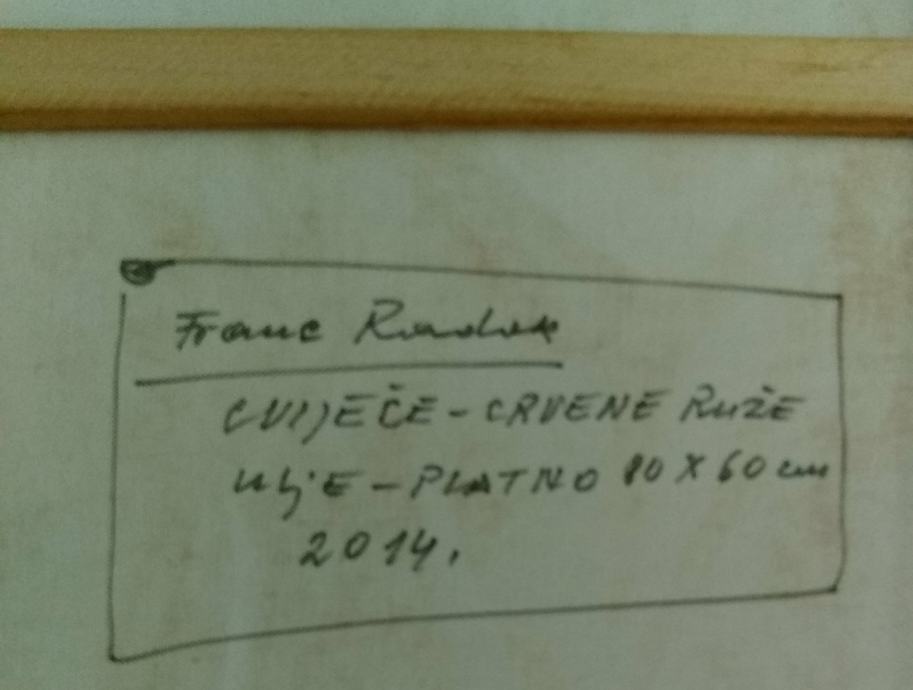 Franc Radok
CVIJEČE - CRVENE RUŽE
ULJE - PLATNO 80 X 60 cm
2014.